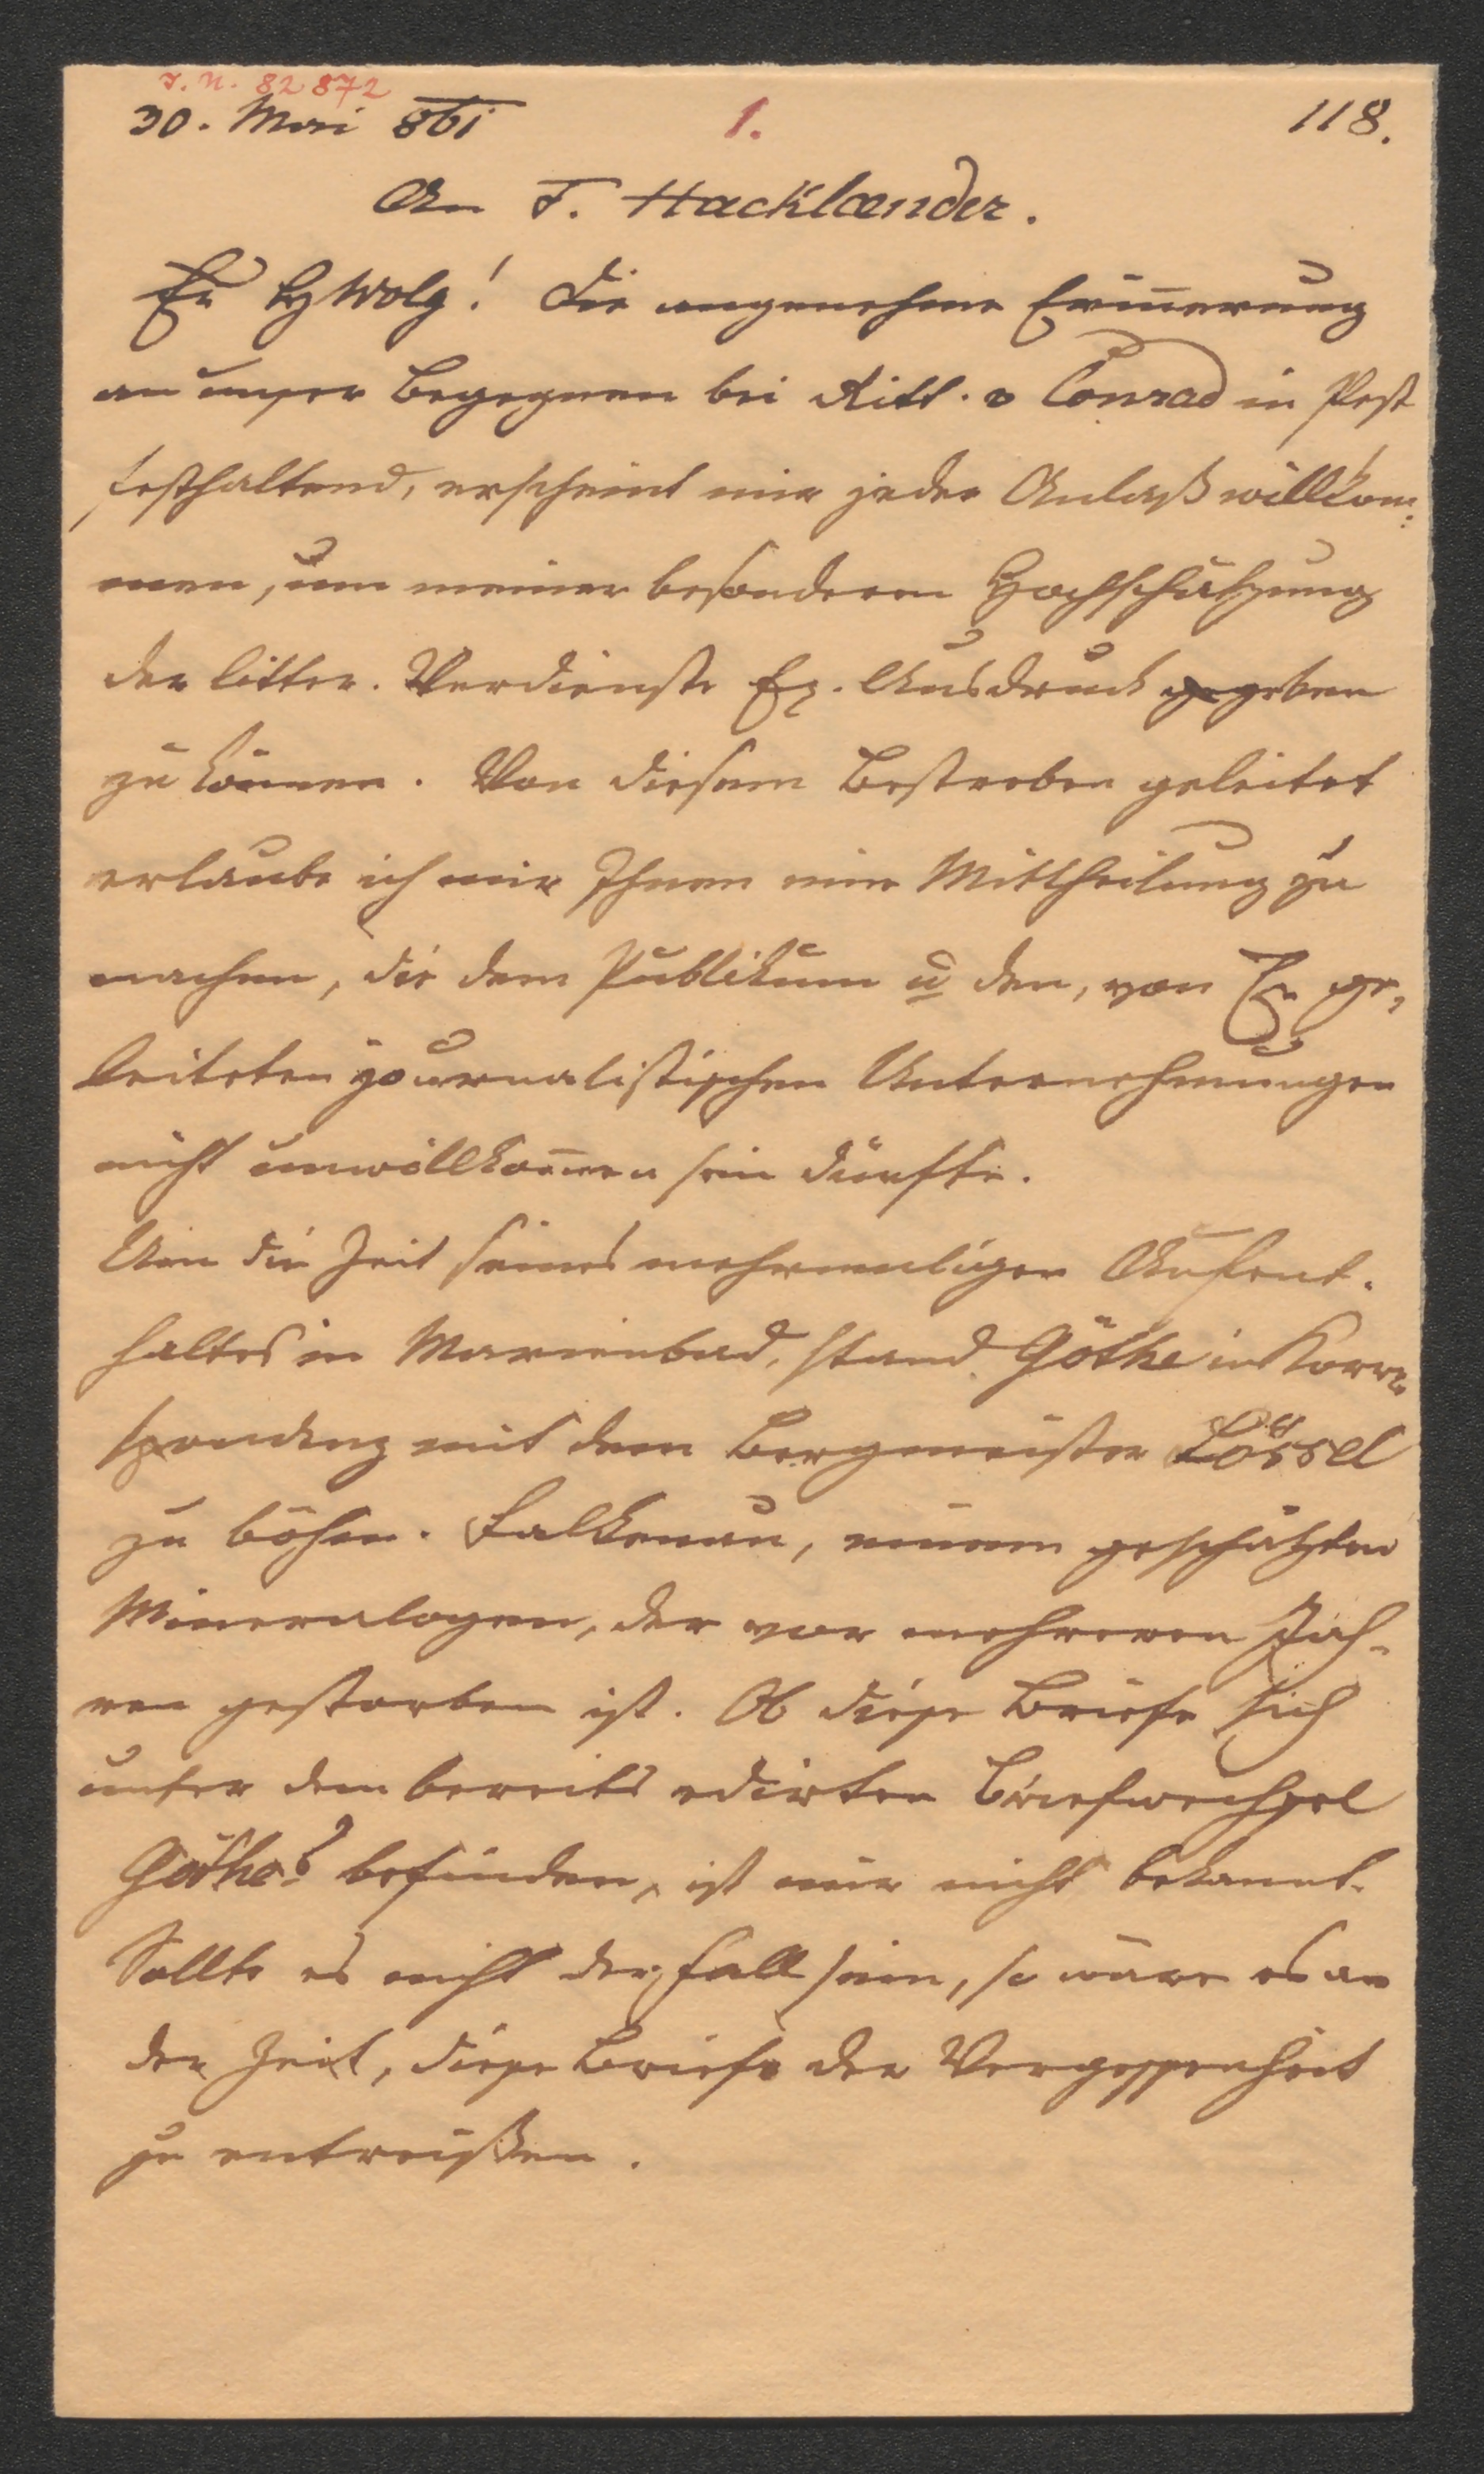 J. N. 82872
30. Mai 861 1. 118.
An F. Hacklænder.
Er HWolg! Die angenehme Erinerung
an unser Begegnen bei Ritt. v Conrad in Pest
festhaltend, erscheint mir jeder Anlaß willkom:
men, um meiner besonderen Hochschätzung
der litter. Verdienste Er. Ausdruck gegeben
zu können. Von diesem Bestreben geleitet
erlaube ich mir Ihnen eine Mittheilung zu
machen, die dem Publikum u den, von Er ge,
leiteten journalistischen Unternehmungen
nicht unwillkomen sein dürfte.
Um die Zeit seines mehrmaligen Aufent-
haltes in Marienbad, stand Göthe in Korre-
spondenz mit dem Bergmeister Lössel
zu böhm. Falkenau, einem geschätzten
Mineralogen, der vor mehreren Jah-
ren gestorben ist. Ob diese Briefe sich
unter dem bereits edirten Briefwechsel
Göthes befinden, ist mir nicht bekannt.
Sollte es nicht der Fall sein, so wäre es an
der Zeit, diese Briefe der Vergessenheit
zu entreißen.